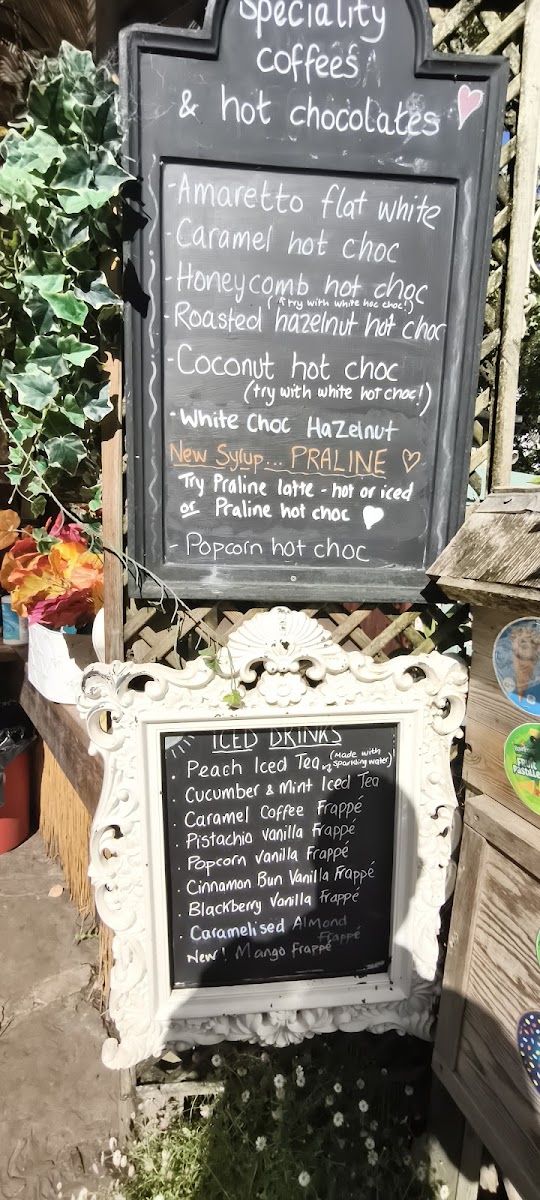 Speciality
coffees
& hot chocolates
- Amaretto flat white
- Caramel hot choc
- Honeycomb hot choc
(↑ try with white hoc choc!)
- Roasted hazelnut hot choc
- Coconut hot choc
(try with white hot choc!)
- White Choc Hazelnut
New Syrup... PRALINE
Try Praline latte - hot or iced
or Praline hot choc
- Popcorn hot choc
ICED DRINKS
· Peach Iced Tea (Made with
sparkling water)!
· Cucumber & Mint Iced Tea
Caramel Coffee Frappé
· Pistachio Vanilla Frappé
Popcorn Vanilla Frappé
· Cinnamon Bun Vanilla Frappé
· Blackberry Vanilla Frappé
· Caramelised Almond
Frappé
New! Mango Frappé
FRUIT
Pastilles